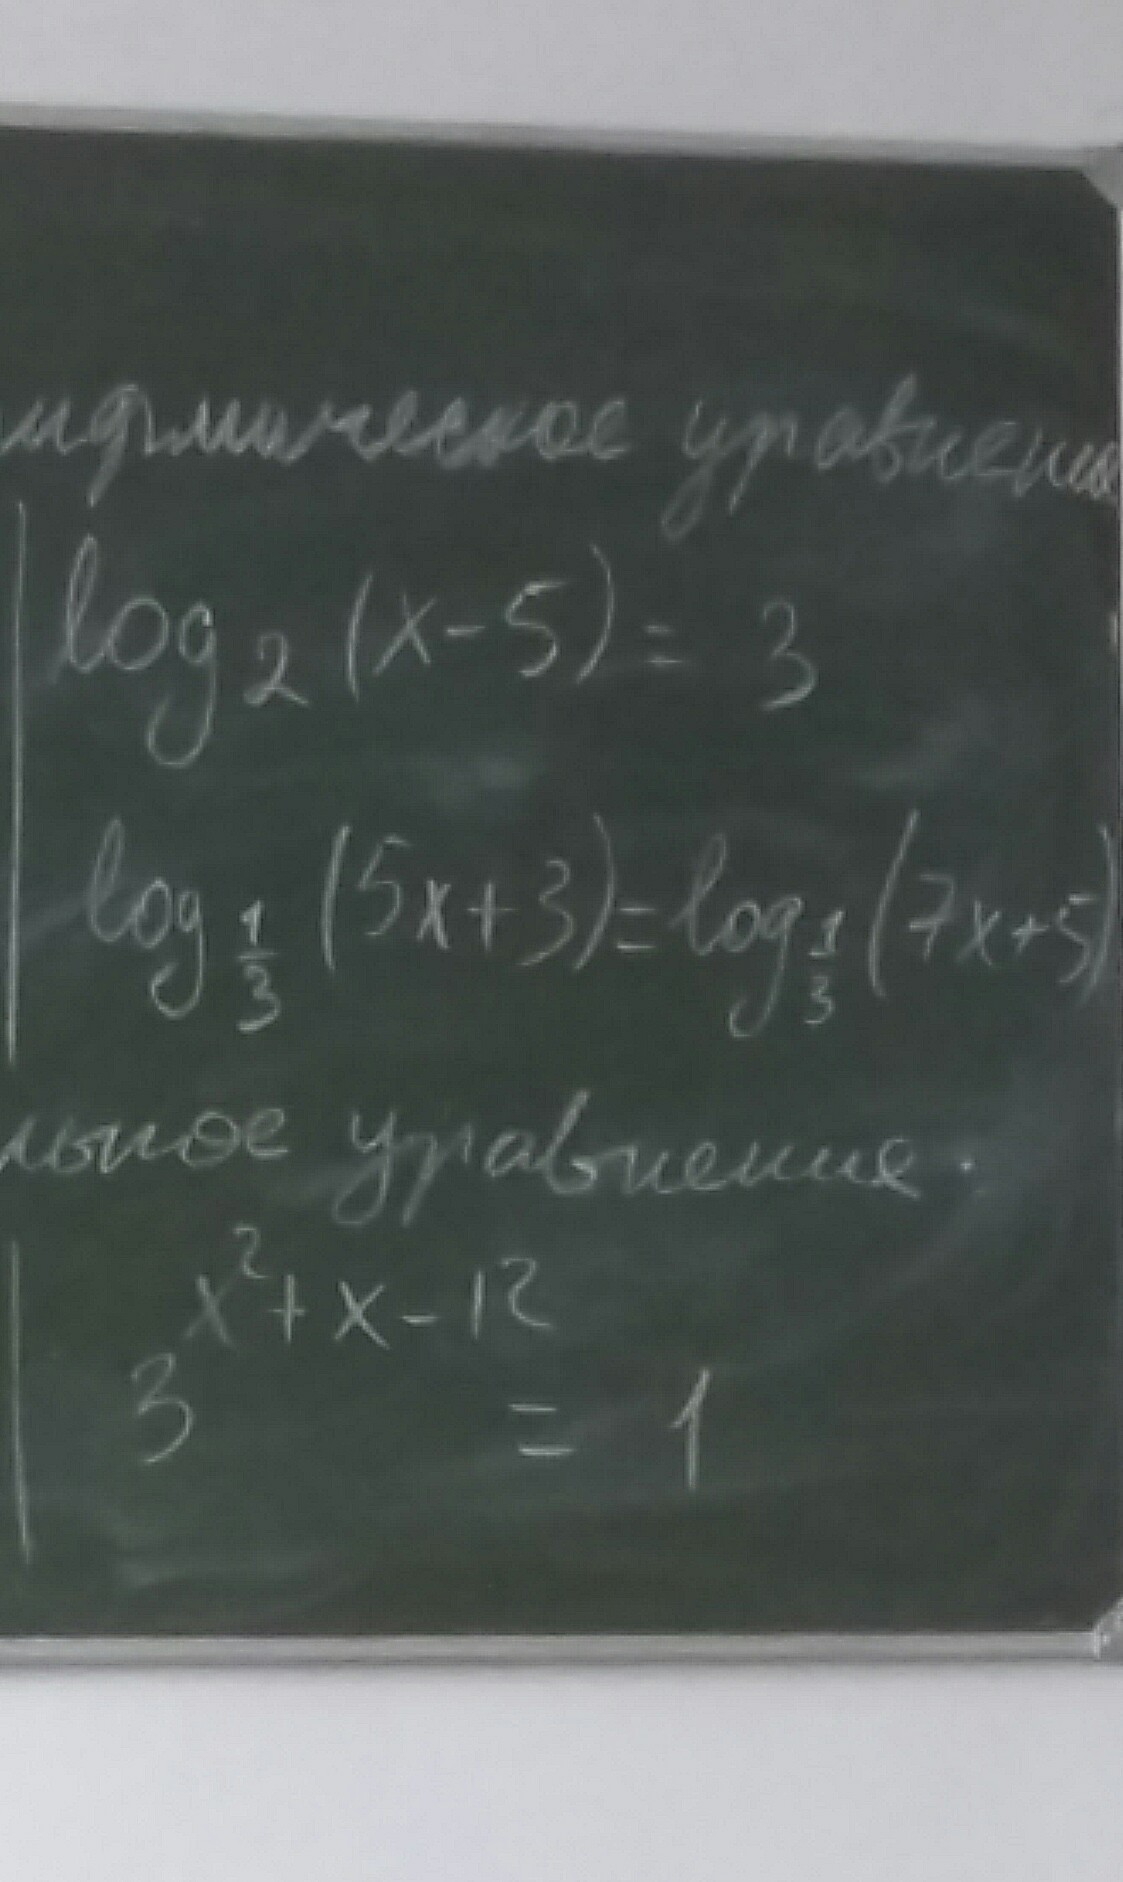 ифмическое уравнени
log₂ (x-5) = 3
log 1/3 (5x+3) = log 1/3 (7x+5)
льное уравнение.
3^(x²+x-12) = 1